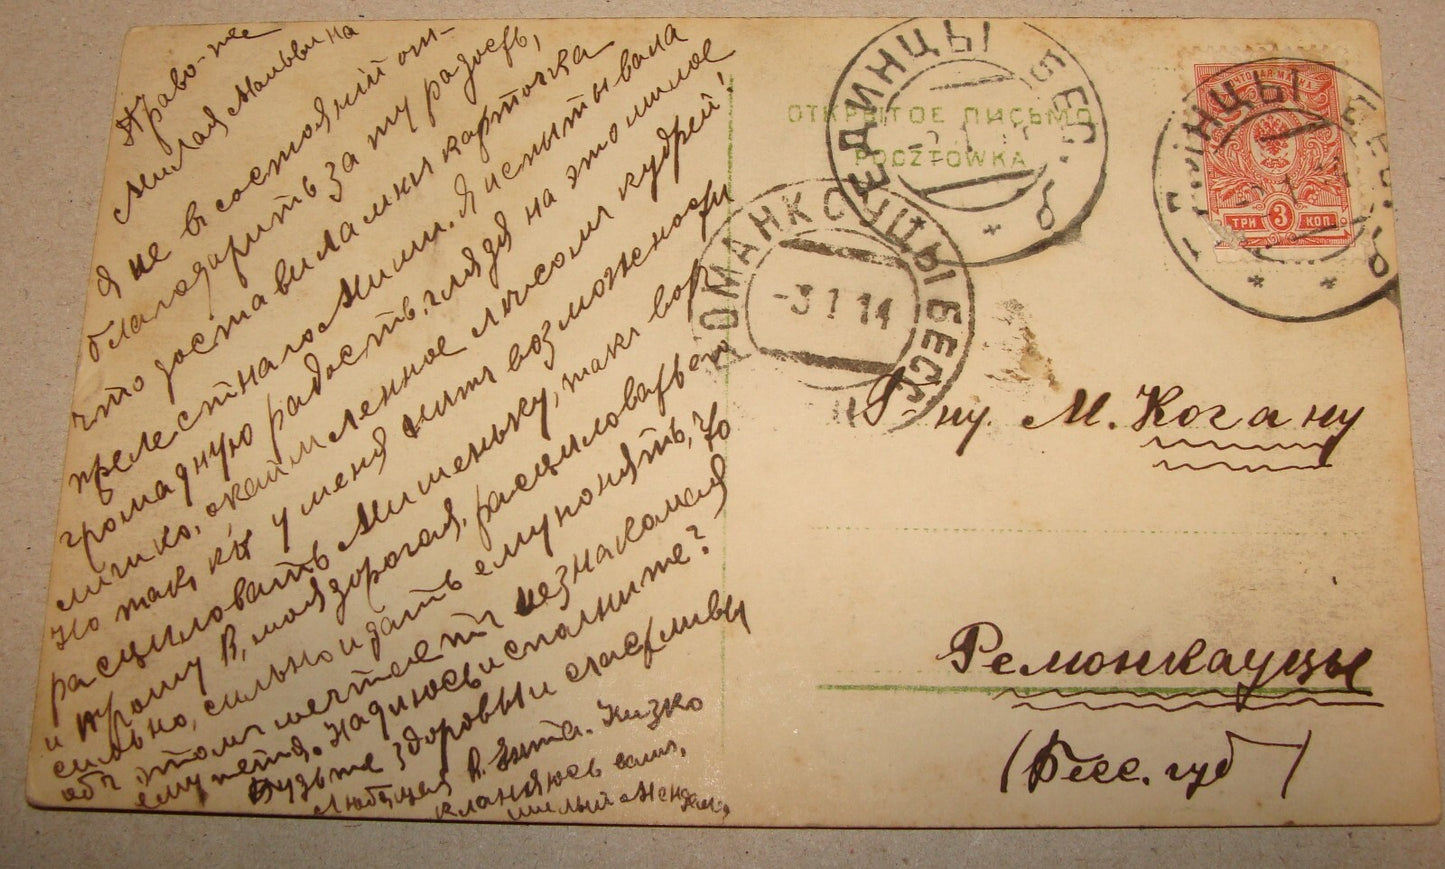 Право-же
милая Мальвина
я не въ состоянiи от-
благодарить за ту радость,
что доставила мнѣ карточка
прелестнаго Миши. Я испытывала
громадную радость, глядя на это милое
личико, окаймленное лѣсомъ кудрей!
Но так, кт у меня нѣтъ возможности
расцѣловать Мишеньку, то
и прошу В, моя дорогая, расцѣловать его
сильно, сильно и дать ему понять, что
объ этомъ мечтаетъ незнакомая
ему тетя. Надѣюсь исполните?
Будьте здоровы и счастливы
Любящая В. Энта. Низко
кланяюсь вамъ,
милый Мендель,
ОТКРЫТОЕ ПИСЬМО
POCZTÓWKA
ЕДИНЦЫ БЕС.
РОМАНКОУЦЫ БЕСС
-3 1 14
ПОЧТОВАЯ МАРКА
ТРИ 3 КОП.
Г-ну. М. Когану
Ремонкауцы
(Бесс. губ)